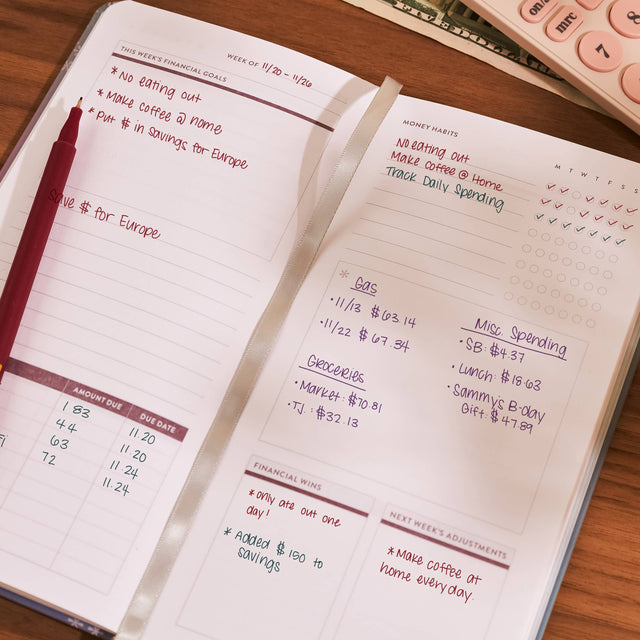 WEEK OF 11/20 - 11/26
THIS WEEK'S FINANCIAL GOALS
* No eating out
* Make coffee @ home
* Put $ in savings for Europe
Save $ for Europe
AMOUNT DUE DUE DATE
183 11.20
44 11.20
63 11.24
72 11.24
MONEY HABITS
M T W T F S S
No eating out
Make coffee @ Home
Track Daily Spending
* Gas
• 11/13 $63.14
• 11/22 $67.34
Groceries
• Market: $70.81
• T.J.: $32.13
Misc Spending
• SB: $4.37
• Lunch: $18.63
• Sammy's B-day
Gift: $47.89
FINANCIAL WINS
* only ate out one
day!
* Added $150 to
savings
NEXT WEEK'S ADJUSTMENTS
* Make coffee at
home every day.
on/
mrc
7
8